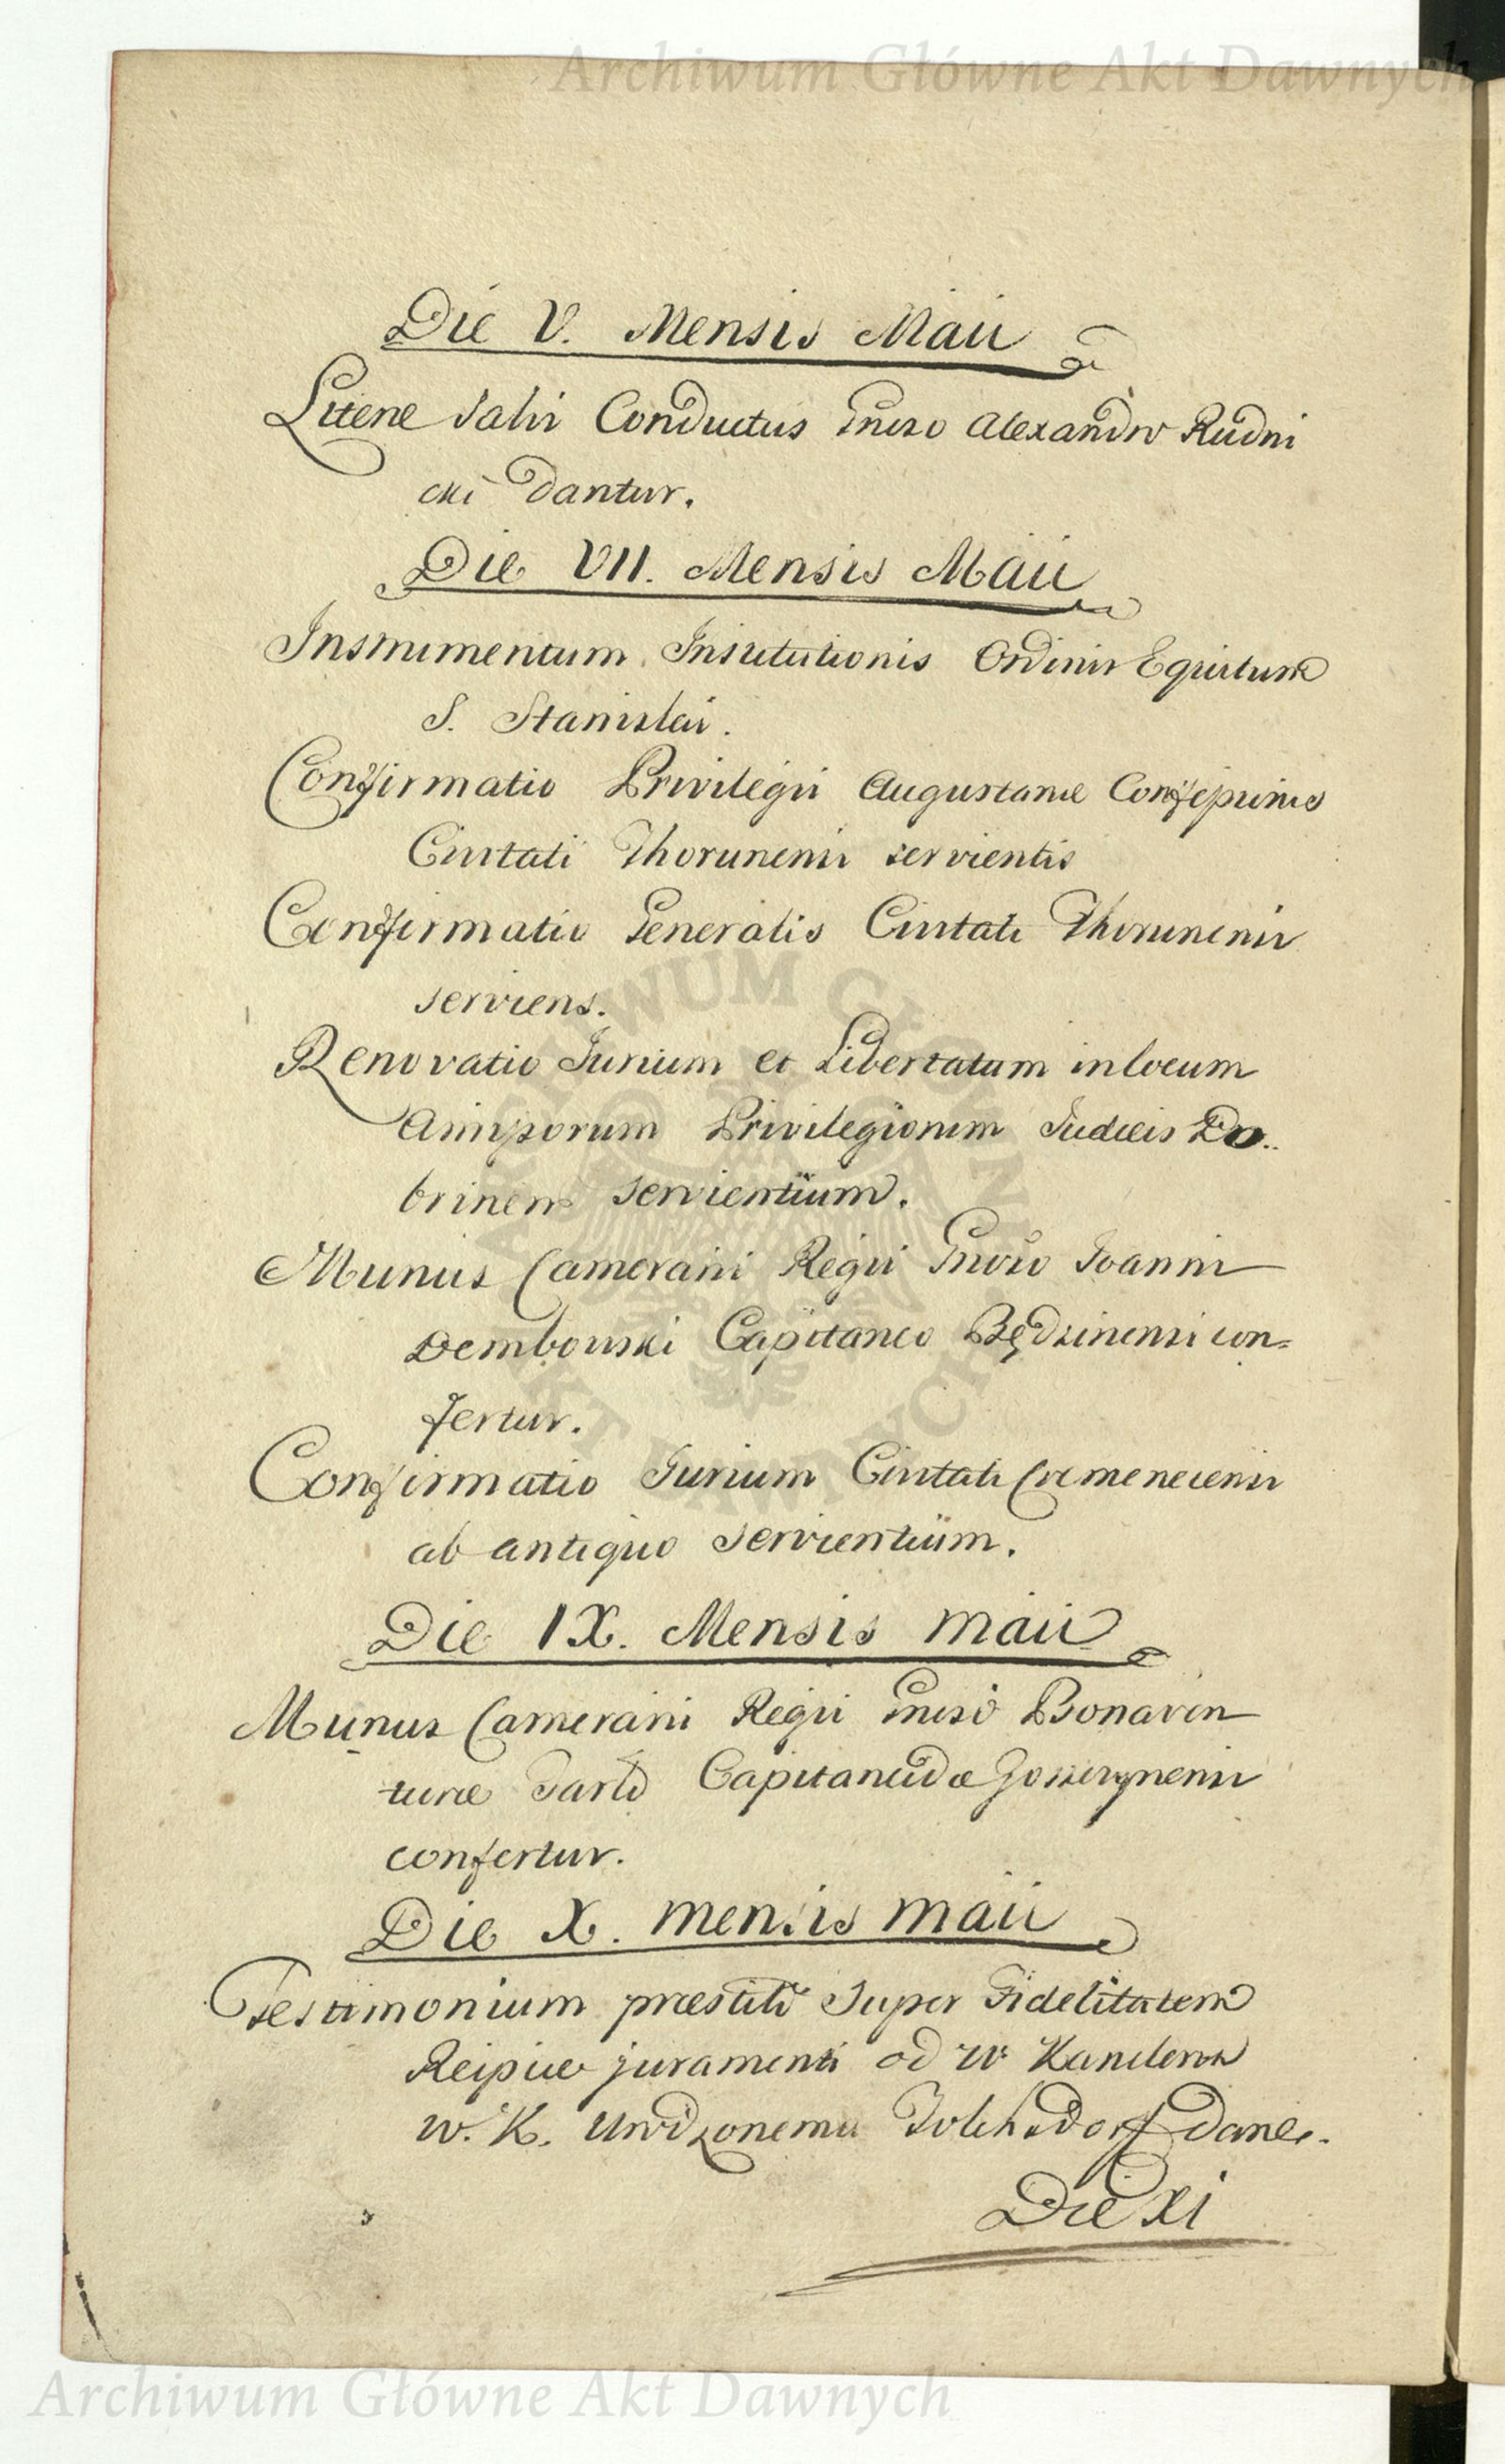 Archiwum Główne Akt Dawnych
Die V. Mensis Maii
Literæ Salvi Conductus Gneroso Alexandro Rudni
cki Dantur.
Die VII. Mensis Maii
Instrumentum Institutionis Ordinis Equitum
S. Stanislai.
Confirmatio Privilegii Augustanæ Confessionis
Civitati Thorunensi servientis
Confirmatio Generalis Civitati Thorunensi
serviens.
Renovatio Jurium et Libertatum in locum
Amissorum Privilegiorum Judæis Do..
brinens servientium.
Munus Camerarii Regii Gnoso Joanni
Dembowski Capitaneo Będzinensi con=
fertur.
Confirmatio Jurium Civitati Cremenecensi
ab antiquo servientium.
Die IX. Mensis Maii
Munus Camerarii Regii Gneso Bonaven
turæ Tarło Capitaneidæ
confertur.
Die X. Mensis Maii
Testimonium præstiti Super Fidelitatem
Reipice juramenti od W Kanclerza
W. K. Urodzonemu Dane.
Die XI
ARCHIWUM GŁÓWNE AKT DAWNYCH
Archiwum Główne Akt Dawnych